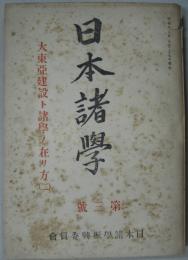 日本諸學
大東亞建設ト諸學ノ在リ方(二)
第三號
日本諸學振興委員會